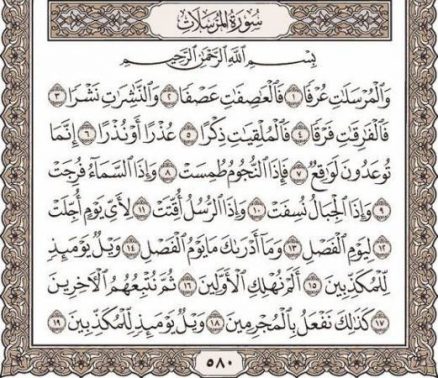 سُورَةُ المُرْسَلَاتِ
بِسْمِ اللَّهِ الرَّحْمَٰنِ الرَّحِيمِ
وَالْمُرْسَلَاتِ عُرْفًا ١ فَالْعَاصِفَاتِ عَصْفًا ٢ وَالنَّاشِرَاتِ نَشْرًا ٣
فَالْفَارِقَاتِ فَرْقًا ٤ فَالْمُلْقِيَاتِ ذِكْرًا ٥ عُذْرًا أَوْ نُذْرًا ٦ إِنَّمَا
تُوعَدُونَ لَوَاقِعٌ ٧ فَإِذَا النُّجُومُ طُمِسَتْ ٨ وَإِذَا السَّمَاءُ فُرِجَتْ
٩ وَإِذَا الْجِبَالُ نُسِفَتْ ١٠ وَإِذَا الرُّسُلُ أُقِّتَتْ ١١ لِأَيِّ يَوْمٍ أُجِّلَتْ
١٢ لِيَوْمِ الْفَصْلِ ١٣ وَمَا أَدْرَاكَ مَا يَوْمُ الْفَصْلِ ١٤ وَيْلٌ يَوْمَئِذٍ
لِّلْمُكَذِّبِينَ ١٥ أَلَمْ نُهْلِكِ الْأَوَّلِينَ ١٦ ثُمَّ نُتْبِعُهُمُ الْآخِرِينَ
١٧ كَذَٰلِكَ نَفْعَلُ بِالْمُجْرِمِينَ ١٨ وَيْلٌ يَوْمَئِذٍ لِّلْمُكَذِّبِينَ ١٩
٥٨٠